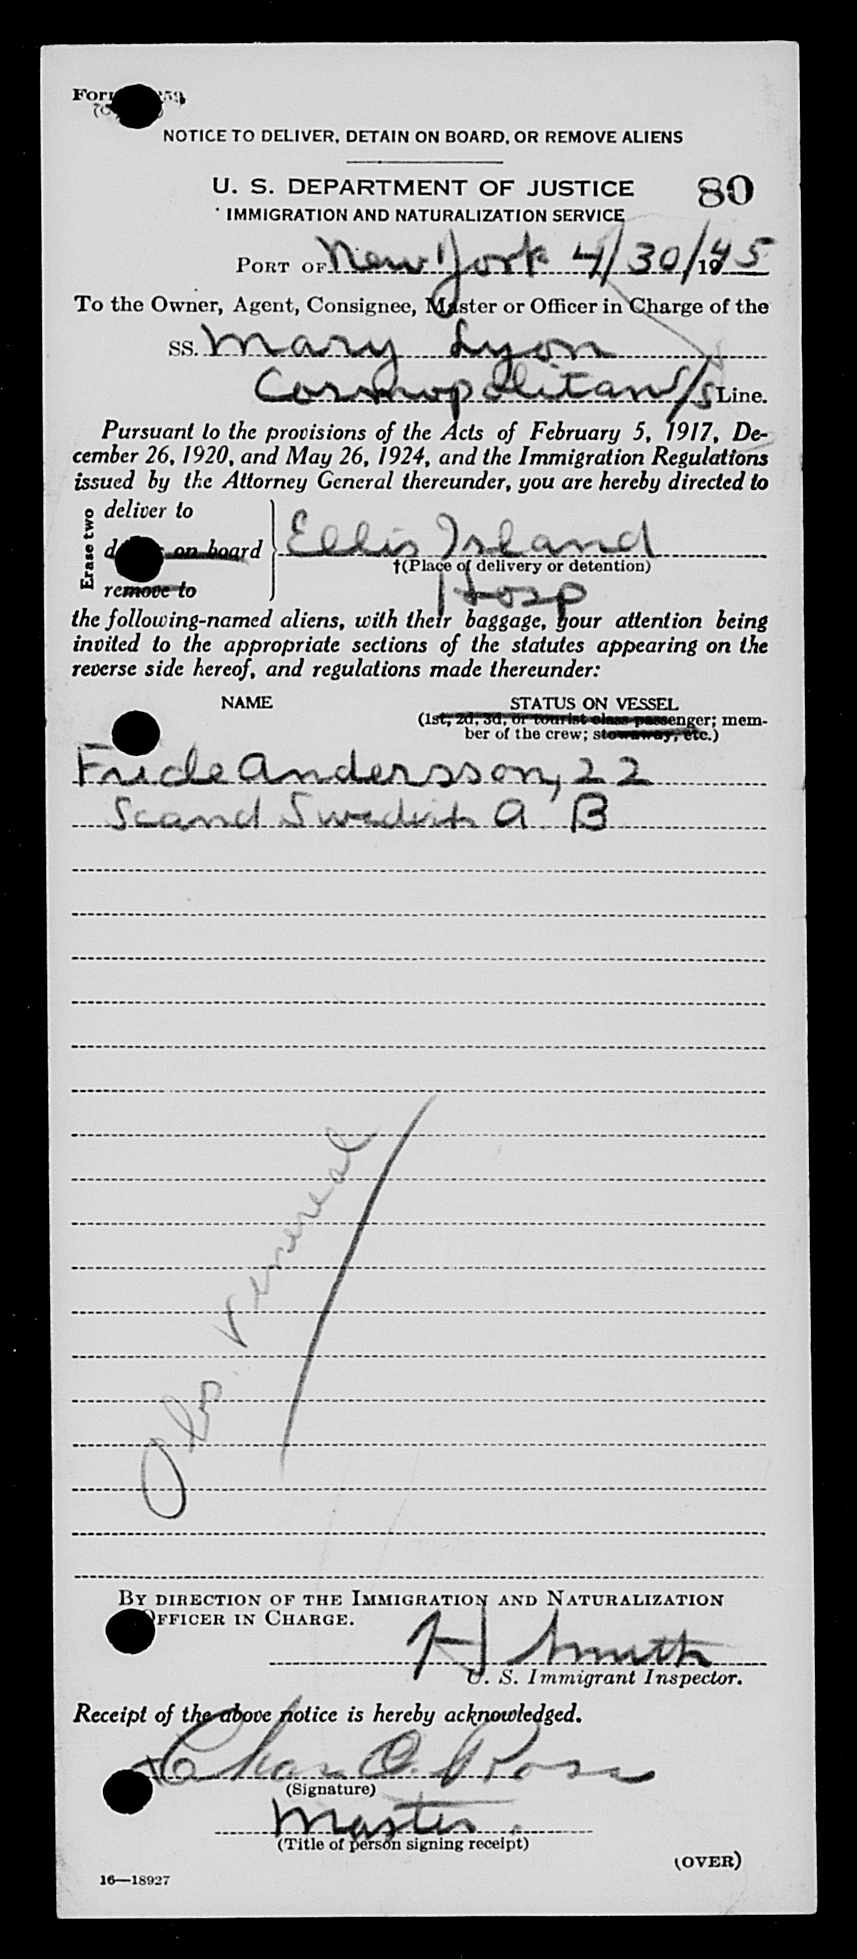 NOTICE TO DELIVER, DETAIN ON BOARD, OR REMOVE ALIENS
U. S. DEPARTMENT OF JUSTICE 80
IMMIGRATION AND NATURALIZATION SERVICE
PORT OF New York 4/30/1945
To the Owner, Agent, Consignee, Master or Officer in Charge of the
SS. Mary Lyon
Cosmopolitan S/S Line.
Pursuant to the provisions of the Acts of February 5, 1917, De-
cember 26, 1920, and May 26, 1924, and the Immigration Regulations
issued by the Attorney General thereunder, you are hereby directed to
Erase two
deliver to
on board Ellis Island
†(Place of delivery or detention)
remove to Hosp
the following-named aliens, with their baggage, your attention being
invited to the appropriate sections of the statutes appearing on the
reverse side hereof, and regulations made thereunder:
NAME STATUS ON VESSEL
(1st, 2d, 3d, or tourist class passenger; mem-
ber of the crew; stowaway, etc.)
Andersson, 22
Scand Swedish A. B
Obs. Venereal
BY DIRECTION OF THE IMMIGRATION AND NATURALIZATION
OFFICER IN CHARGE.
H Smith
U. S. Immigrant Inspector.
Receipt of the above notice is hereby acknowledged.
Chas O. Ross
(Signature)
Master.
(Title of person signing receipt)
(OVER)
16—18927